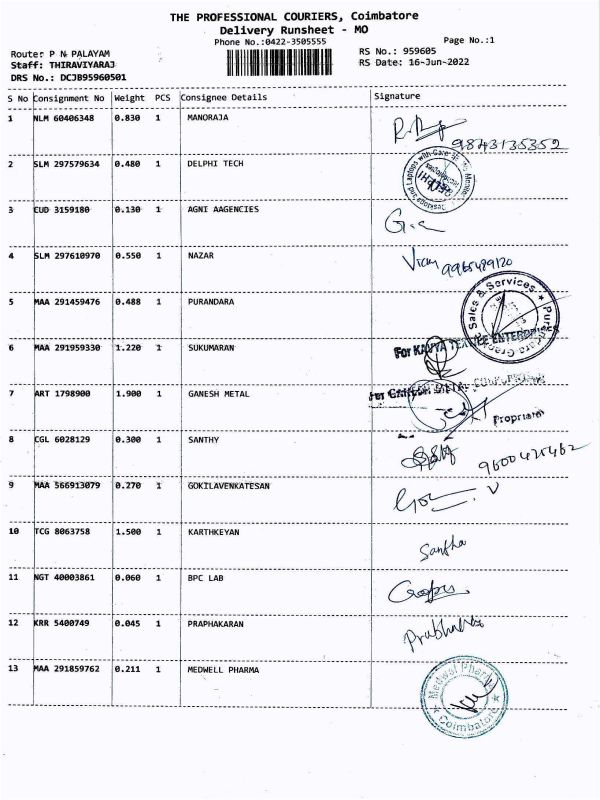 THE PROFESSIONAL COURIERS, Coimbatore
Delivery Runsheet - MO
Phone No.:0422-3505555
Page No.:1
Route: P N PALAYAM
RS No.: 959605
Staff: THIRAVIYARAJ
RS Date: 16-Jun-2022
DRS No.: DCJB95960501
S No Consignment No Weight PCS Consignee Details Signature
1 NLM 60406348 0.830 1 MANORAJA
9843135352
2 SLM 297579634 0.480 1 DELPHI TECH
3 CUD 3159180 0.130 1 AGNI AAGENCIES
4 SLM 297610970 0.550 1 NAZAR
Vicky 9965489120
5 MAA 291459476 0.488 1 PURANDARA
Sales & Services
6 MAA 291959330 1.220 1 SUKUMARAN
For KAVYA TEXTILE ENTERPRISES
7 ART 1798900 1.900 1 GANESH METAL
For GANESH METAL CORPORATION
Proprietor
8 CGL 6028129 0.300 1 SANTHY
9600425462
9 MAA 566913079 0.270 1 GOKILAVENKATESAN
10 TCG 8063758 1.500 1 KARTHKEYAN
Santha
11 NGT 40003861 0.060 1 BPC LAB
12 KRR 5400749 0.045 1 PRAPHAKARAN
13 MAA 291859762 0.211 1 MEDWELL PHARMA
Medwel Pharma
Coimbatore